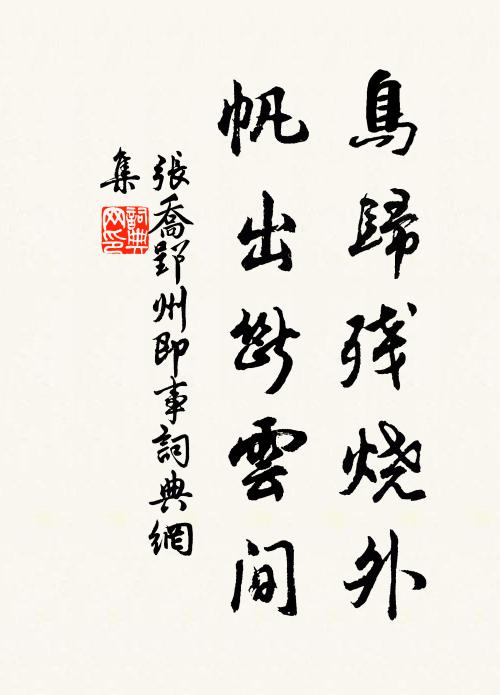 鳥歸残烧外
帆出斷雲间
張喬郢州即事詞典網
集
詞典网印